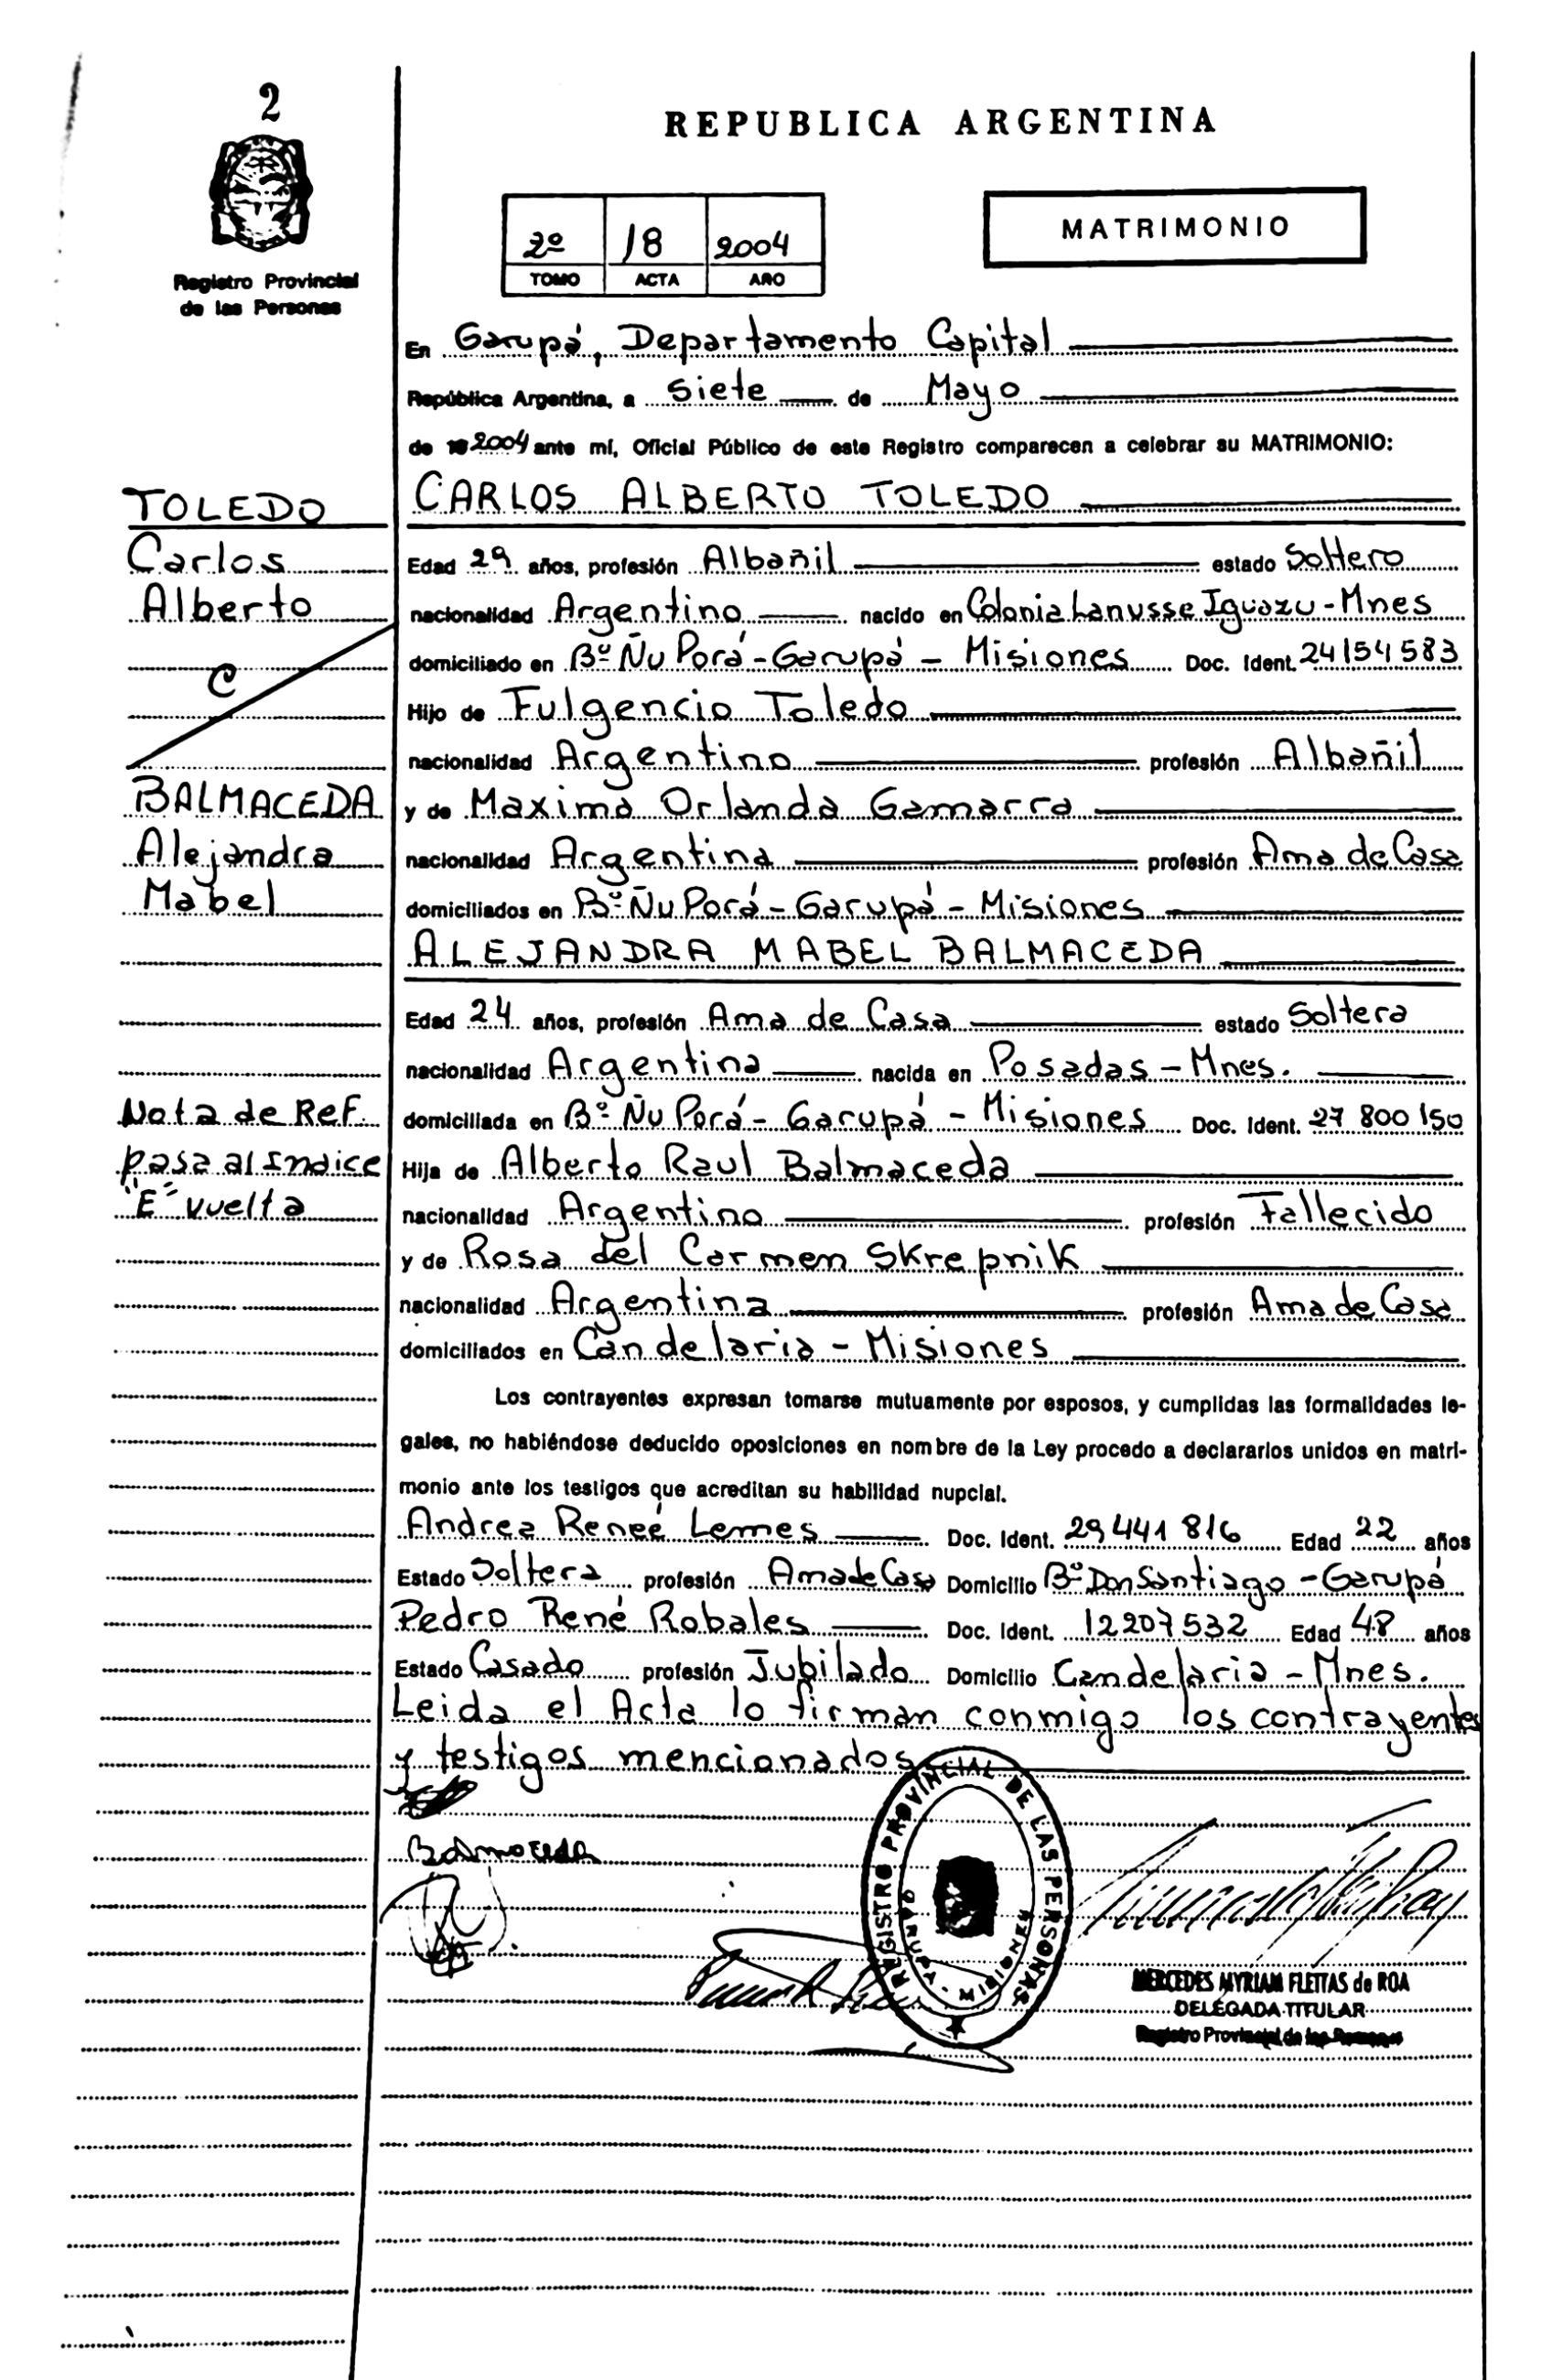 2
REPUBLICA ARGENTINA
Registro Provincial
de las Personas
2º 18 2004
TOMO ACTA AÑO
MATRIMONIO
En Garupá, Departamento Capital
República Argentina, a Siete de Mayo
de 19 2004 ante mí, Oficial Público de este Registro comparecen a celebrar su MATRIMONIO:
TOLEDO
Carlos
Alberto
C
BALMACEDA
Alejandra
Mabel
Nota de Ref.
pasa al Indice
"E" vuelta
CARLOS ALBERTO TOLEDO
Edad 29 años, profesión Albañil estado Soltero
nacionalidad Argentino nacido en Colonia Lanusse Iguazu - Mnes
domiciliado en Bº Ñu Porá - Garupá - Misiones Doc. Ident. 24154583
Hijo de Fulgencio Toledo
nacionalidad Argentino profesión Albañil
y de Maxima Orlanda Gamarra
nacionalidad Argentina profesión Ama de Casa
domiciliados en Bº Ñu Porá - Garupá - Misiones
ALEJANDRA MABEL BALMACEDA
Edad 24 años, profesión Ama de Casa estado Soltera
nacionalidad Argentina nacida en Posadas - Mnes.
domiciliada en Bº Ñu Porá - Garupá - Misiones Doc. Ident. 27 800 150
Hija de Alberto Raul Balmaceda
nacionalidad Argentino profesión Fallecido
y de Rosa del Carmen Skrepnik
nacionalidad Argentina profesión Ama de Casa
domiciliados en Candelaria - Misiones
Los contrayentes expresan tomarse mutuamente por esposos, y cumplidas las formalidades le-
gales, no habiéndose deducido oposiciones en nombre de la Ley procedo a declararlos unidos en matri-
monio ante los testigos que acreditan su habilidad nupcial.
Andrea Reneé Lemes Doc. Ident. 29 441 816 Edad 22 años
Estado Soltera profesión Ama de Casa Domicilio Bº Don Santiago - Garupá
Pedro René Robales Doc. Ident. 12207532 Edad 48 años
Estado Casado profesión Jubilado Domicilio Candelaria - Mnes.
Leida el Acta lo firman conmigo los contrayentes
y testigos mencionados
Balmaceda
REGISTRO PROVINCIAL DE LAS PERSONAS
GARUPA - MISIONES
MERCEDES MYRIAM FLEITAS de ROA
DELEGADA TITULAR
Registro Provincial de las Personas